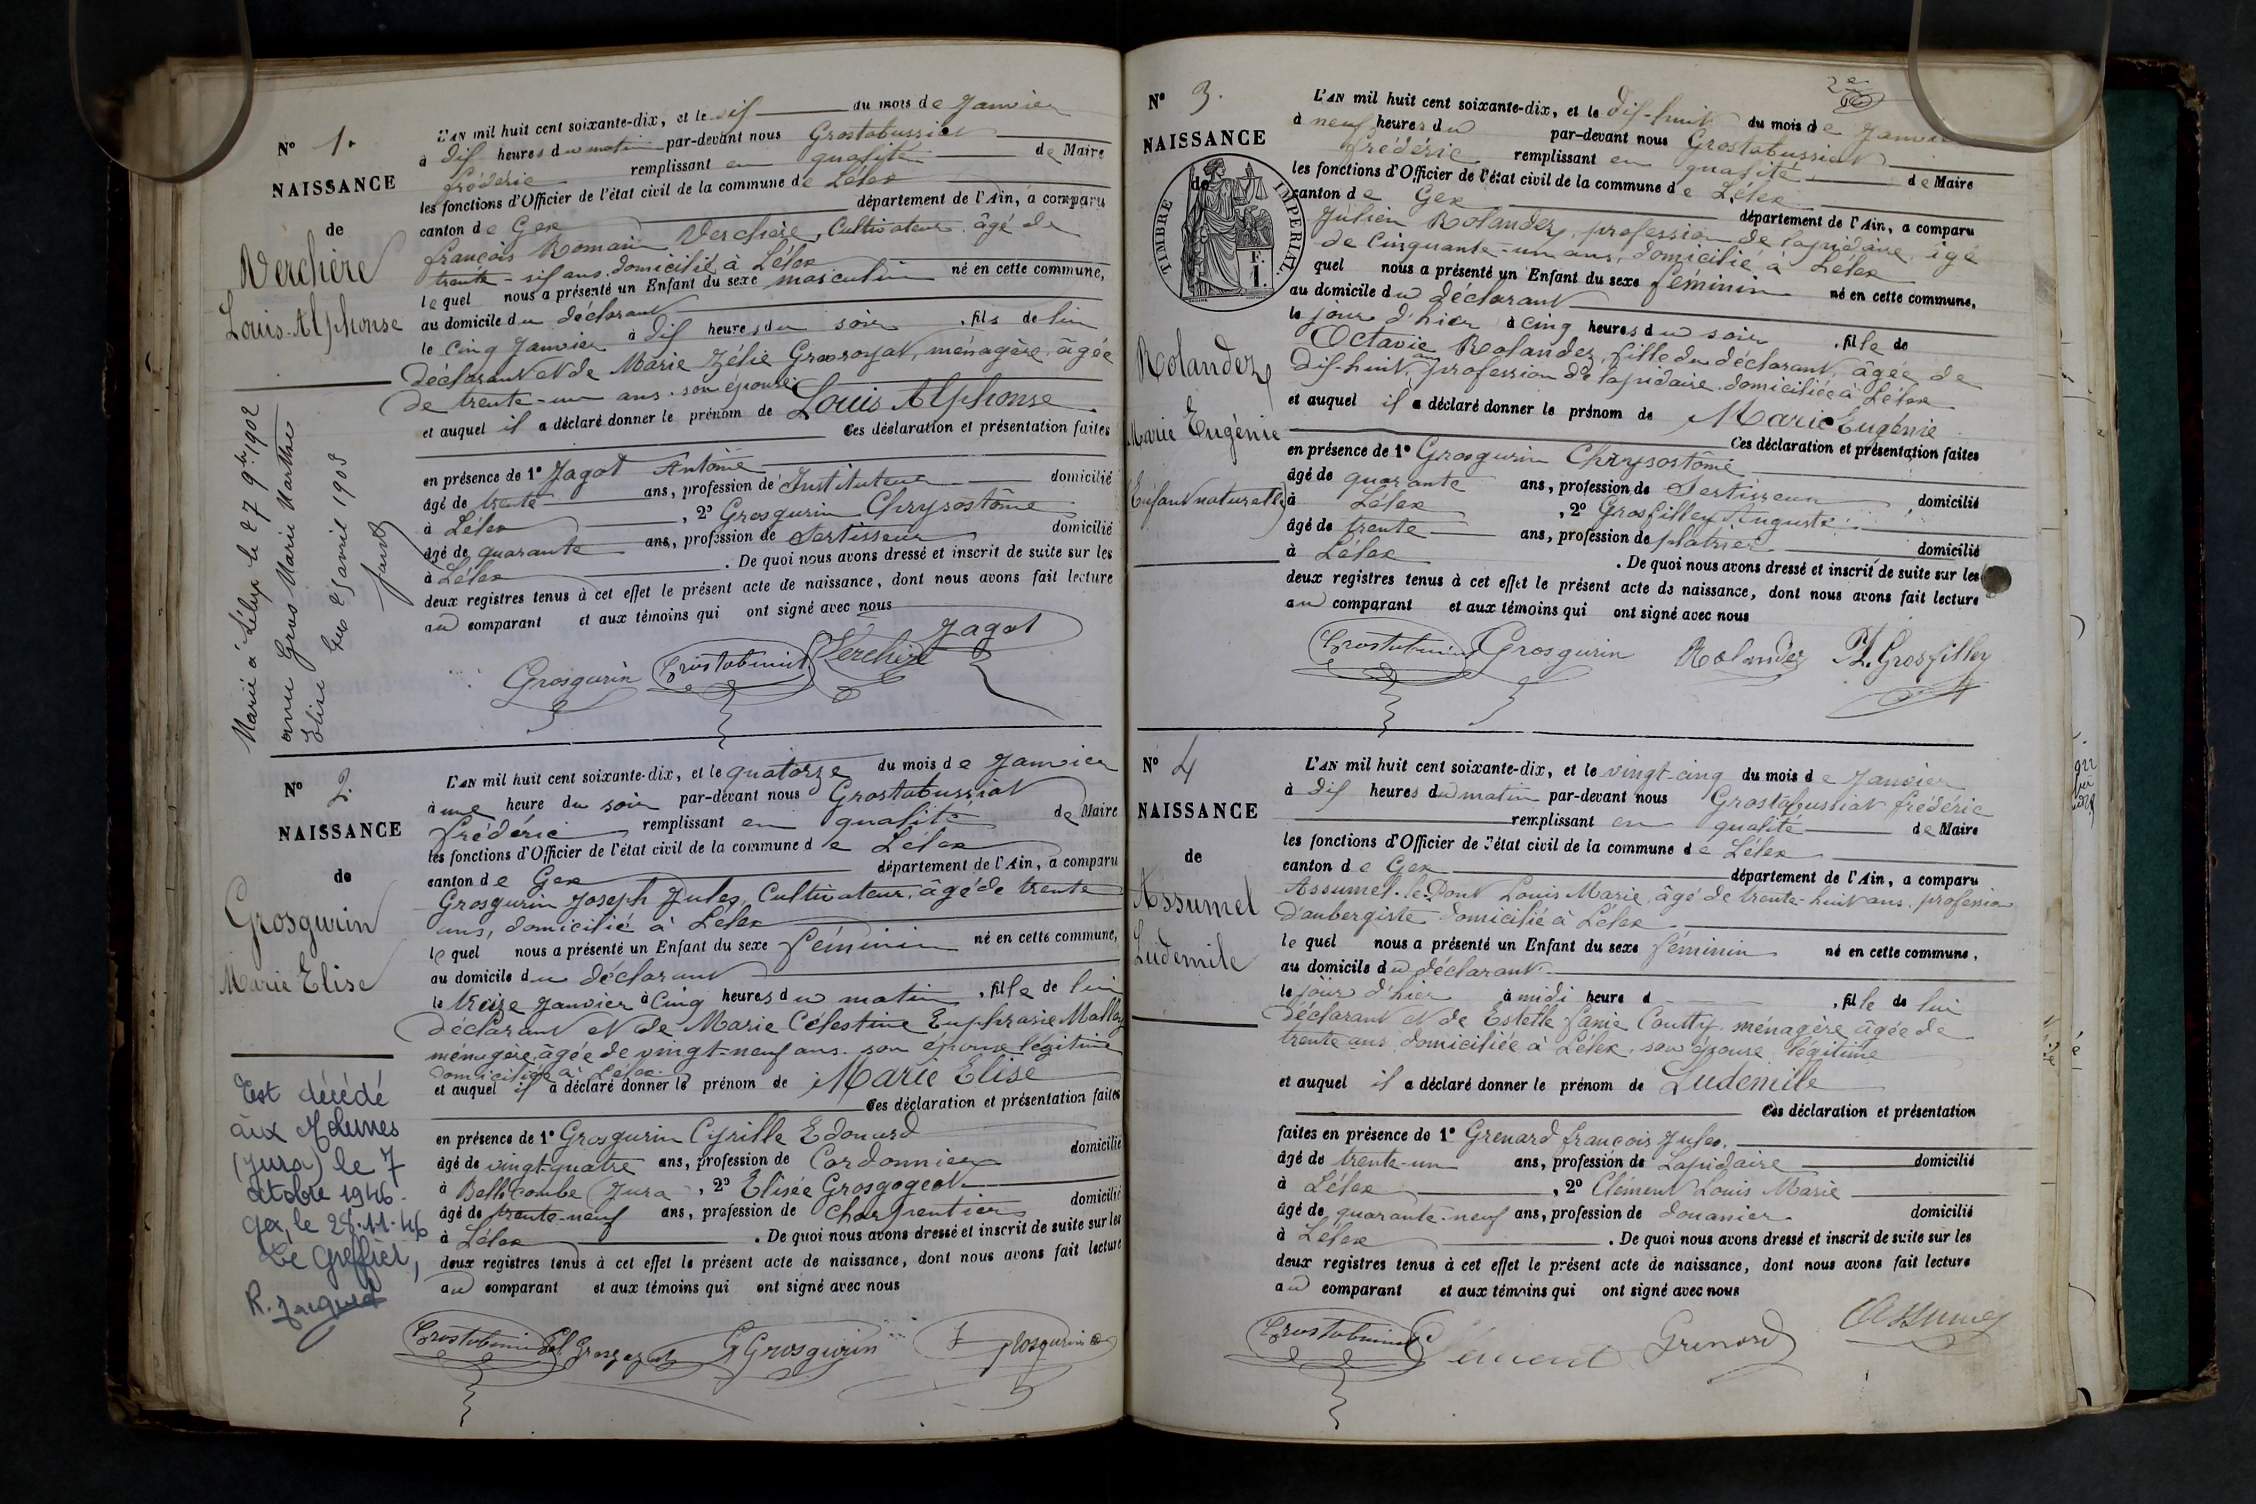 N° 1.
NAISSANCE
de
Verchère
Louis-Alphonse
Marié à Lélex le 27 9bre 1902
avec Gros Marie Marthe
Elise Gex 25 avril 1908
L'AN mil huit cent soixante-dix, et le six du mois de Janvier
à dix heures du matin par-devant nous Grostabussiat
frédéric remplissant en qualité de Maire
les fonctions d'Officier de l'état civil de la commune de Lélex
canton de Gex département de l'Ain, a comparu
françois Romain Verchère, Cultivateur âgé de
trente-six ans domicilié à Lélex
lequel nous a présenté un Enfant du sexe masculin né en cette commune,
au domicile du déclarant
le cinq Janvier à dix heures du soir, fils de lui
déclarant et de Marie Zélie Grosroyat, ménagère, âgée
de trente-un ans. son épouse.
et auquel il a déclaré donner le prénom de Louis Alphonse
Ces déclaration et présentation faites
en présence de 1° Jagot Antoine
âgé de trente ans, profession de Instituteur domicilié
à Lélex, 2° Grosgurin Chrysostôme
âgé de quarante ans, profession de Sertisseur domicilié
à Lélex. De quoi nous avons dressé et inscrit de suite sur les
deux registres tenus à cet effet le présent acte de naissance, dont nous avons fait lecture
au comparant et aux témoins qui ont signé avec nous
Jagot
Grosgurin Grostabussiat Verchère
N° 2.
NAISSANCE
de
Grosgurin
Marie Elise
Est décédé
aux Molunes
(Jura) le 7
octobre 1946.
Gex, le 28.11.46
Le Greffier,
L'AN mil huit cent soixante-dix, et le quatorze du mois de Janvier
à une heure du soir par-devant nous Grostabussiat
frédéric remplissant en qualité de Maire
les fonctions d'Officier de l'état civil de la commune de Lélex
canton de Gex département de l'Ain, a comparu
Grosgurin Joseph Jules, Cultivateur, âgé de trente
ans, domicilié à Lélex
lequel nous a présenté un Enfant du sexe féminin né en cette commune,
au domicile du déclarant
le treize Janvier à Cinq heures du matin, fille de lui
déclarant et de Marie Célestine Euphrasie Mollex
ménagère, âgée de vingt-neuf ans. son épouse légitime
domiciliée à Lélex.
et auquel il a déclaré donner le prénom de Marie Elise
Ces déclaration et présentation faites
en présence de 1° Grosgurin Cyrille Edouard
âgé de vingt-quatre ans, profession de Cordonnier domicilié
à Bellecombe (Jura, 2° Elisée Grosgogeat
âgé de trente-neuf ans, profession de Charpentier domicilié
à Lélex. De quoi nous avons dressé et inscrit de suite sur les
deux registres tenus à cet effet le présent acte de naissance, dont nous avons fait lecture
au comparant et aux témoins qui ont signé avec nous
Grostabussiat El Grosgogeat G Grosgurin J grosgurin
2e
N° 3.
NAISSANCE
de
TIMBRE IMPERIAL.
F.
1.
Rolandez
Marie Eugénie
(Enfant naturelle)
L'AN mil huit cent soixante-dix, et le dix-huit du mois de Janvier
à neuf heures du par-devant nous Grostabussiat
frédéric remplissant en qualité de Maire
les fonctions d'Officier de l'état civil de la commune de Lélex
canton de Gex département de l'Ain, a comparu
Julien Rolandez, profession de lapidaire, âgé
de Cinquante-un ans, domicilié à Lélex
quel nous a présenté un Enfant du sexe féminin né en cette commune,
au domicile du déclarant
le jour d'hier à cinq heures du soir, fille de
Octavie Rolandez, fille du déclarant, âgée de
dix-huit ans profession de lapidaire domiciliée à Lélex
et auquel il a déclaré donner le prénom de Marie Eugénie
Ces déclaration et présentation faites
en présence de 1° Grosgurin Chrysostôme
âgé de quarante ans, profession de Sertisseur domicilié
à Lélex, 2° Grosfilley Auguste
âgé de trente ans, profession de platrier domicilié
à Lélex. De quoi nous avons dressé et inscrit de suite sur les
deux registres tenus à cet effet le présent acte de naissance, dont nous avons fait lecture
au comparant et aux témoins qui ont signé avec nous
Grostabussiat Grosgurin Rolandez Grosfilley
N° 4
NAISSANCE
de
Assumel
Ludemile
L'AN mil huit cent soixante-dix, et le vingt-cinq du mois de Janvier
à dix heures du matin par-devant nous Grostabussiat frédéric
remplissant en qualité de Maire
les fonctions d'Officier de l'état civil de la commune de Lélex
canton de Gex département de l'Ain, a comparu
Assumel-le Dont Louis Marie, âgé de trente-huit ans, profession
d'aubergiste domicilié à Lélex
lequel nous a présenté un Enfant du sexe féminin né en cette commune,
au domicile du déclarant
le jour d'hier à midi heure d, fille de lui
déclarant et de Estelle fanie Coutty ménagère âgée de
trente ans domiciliée à Lélex. son épouse légitime
et auquel il a déclaré donner le prénom de Ludemile
Ces déclaration et présentation
faites en présence de 1° Grenard françois Jules.
âgé de trente-un ans, profession de Lapidaire domicilié
à Lélex, 2° Clément Louis Marie
âgé de quarante-neuf ans, profession de douanier domicilié
à Lélex. De quoi nous avons dressé et inscrit de suite sur les
deux registres tenus à cet effet le présent acte de naissance, dont nous avons fait lecture
au comparant et aux témoins qui ont signé avec nous
Grostabussiat Clément Grenard Assumel